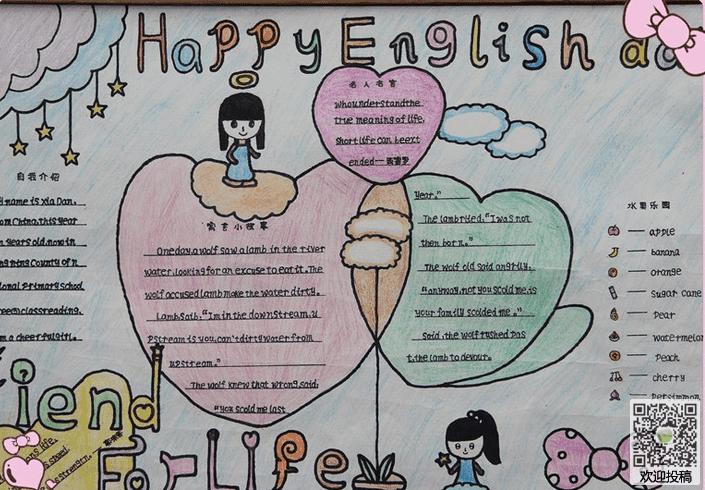 Happy English
名人名言
who understand the
true meaning of life,
short life can be ext
ended——西塞罗
自我介绍
name is Xia Dan.
China. this year
years old, now in
County of
Primary school
reading.
a cheerful girl.
寓言小故事
One day, a wolf saw a lamb in the river
water, looking for an excuse to eat it. The
wolf accused lamb make the water dirty.
Lamb saib, "I'm in the downstream, u
pstream is you, can't dirty water from
upstream."
The wolf knew that wrong, said:
"you scold me last
year."
The lamb ryed, "I was not
then born."
The wolf old said angrily,
"anyway, not you scold me, is
your family scolded me."
Said, the wolf rushed pas
t, the lamb to devour.
水果乐园
apple
banana
orange
Sugar cane
Pear
watermelon
Peach
cherry
Persimmon
iend
For Life
life.
strength.
欢迎投稿